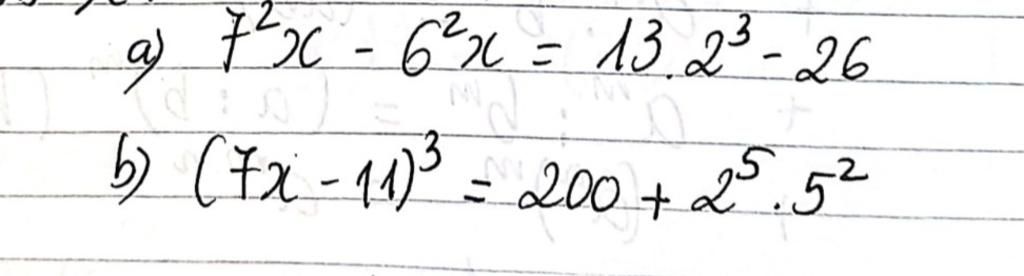 a) 7²x - 6²x = 13.2³ - 26
b) (7x - 11)³ = 200 + 2⁵.5²